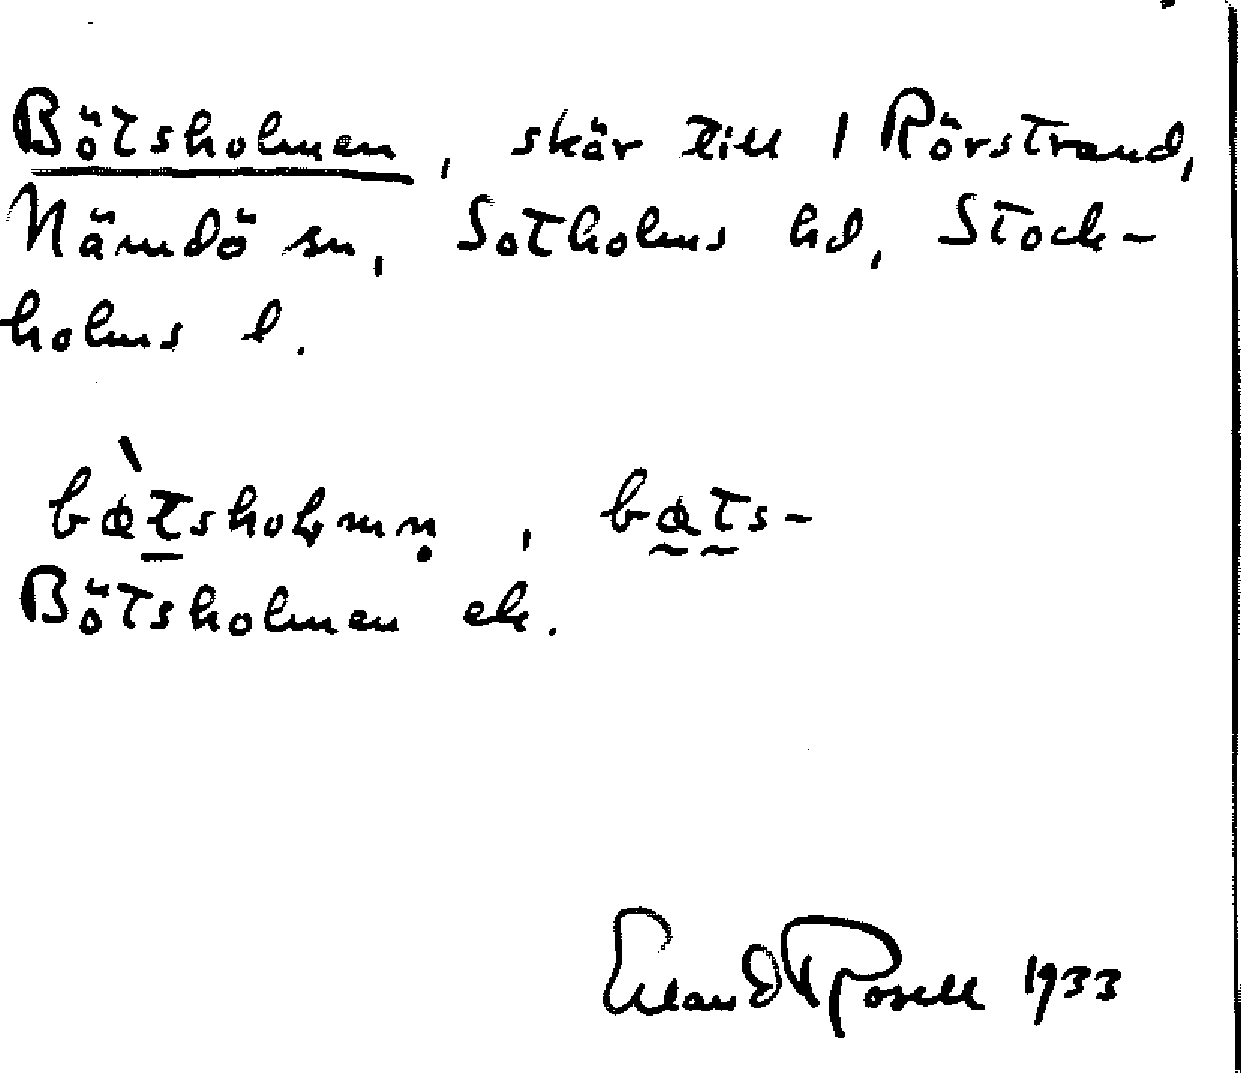 Bötsholmen, skär till 1 Rörstrand,
Nämdö sn, Sotholms hd, Stock-
holms l.
bø̀tsholmn̥, bøts-
Bötsholmen ek.
Erland Rosell 1933